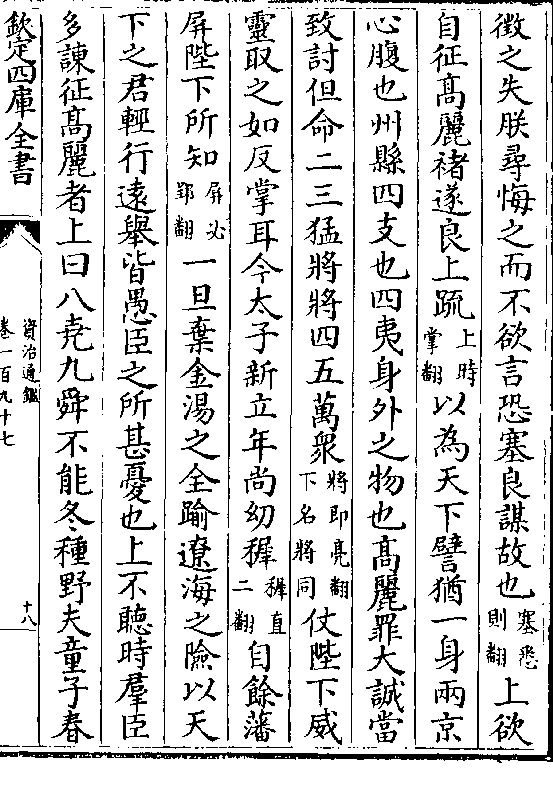 徵之失朕尋悔之而不欲言恐塞良謀故也塞悉則翻上欲
自征高麗禇遂良上疏上時掌翻以為天下譬猶一身兩京
心腹也州縣四支也四夷身外之物也高麗罪大誠當
致討但命二三猛將將四五萬衆將即亮翻下名將同仗陛下威
靈取之如反掌耳今太子新立年尚幼穉穉直二翻自餘藩
屏陛下所知屏必郢翻一旦棄金湯之全踰遼海之險以天
下之君輕行遠舉皆愚臣之所甚憂也上不聽時羣臣
多諫征高麗者上曰八堯九舜不能冬種野夫童子春
欽定四庫全書
資治通鑑
卷一百九十七
十八